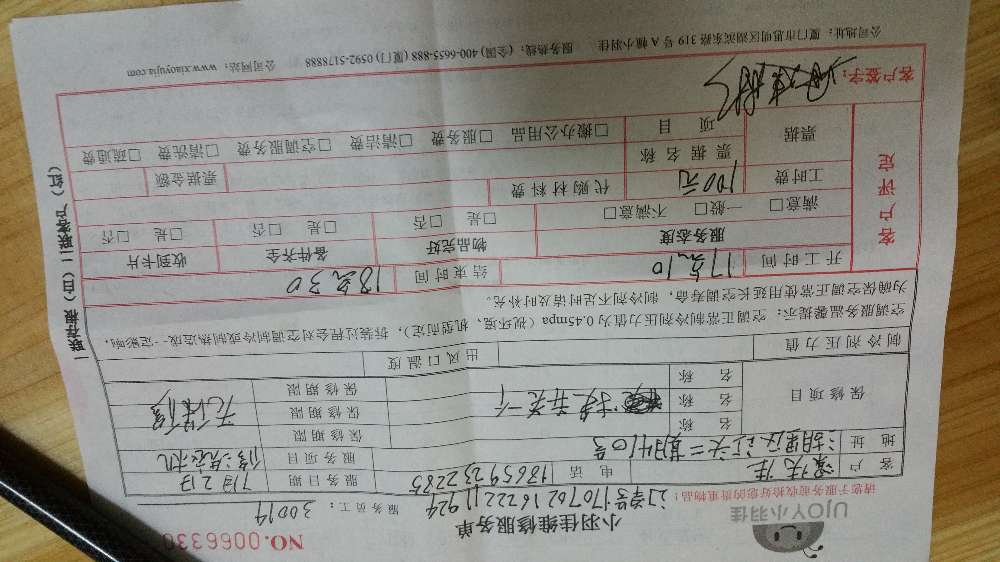 UJOY小羽佳
NO.0066330
小羽佳维修服务单
请您于服务前收拾好您的贵重物品!
订单号170702162221924
服务员工: 30019
客户
电话 18659232285
服务日期 7月2日
地址
服务项目
保修项目
名称
保修期限
名称
保修期限 无保修
名称
保修期限
制冷剂压力值
出风口温度
空调服务温馨提示: 空调正常制冷剂压力值为0.45mpa(视环境、机型而定),拆装过程会对空调制冷或制热造成一定影响,
为确保空调正常使用延长空调寿命,制冷剂不足时请及时补充。
客户评定
开工时间 17点10
结束时间 18点30
服务态度
物品完好
备件齐全
收到卡片
满意□ 一般□ 不满意□
□是 □否
□是 □否
□是 □否
工时费 100元
代购材料费
票据
票据名称
票据金额
项目
□搬办公用品 □服务费 □清洁费 □空调服务费 □清洗费 □疏通费
客户签字:
公司地址: 厦门市思明区湖滨东路319号A幢小羽佳 服务热线: (全国) 400-6655-888 (厦门) 0592-5178888 公司网站: www.xiaoyujia.com
一联存根(白) 二联客户(红)